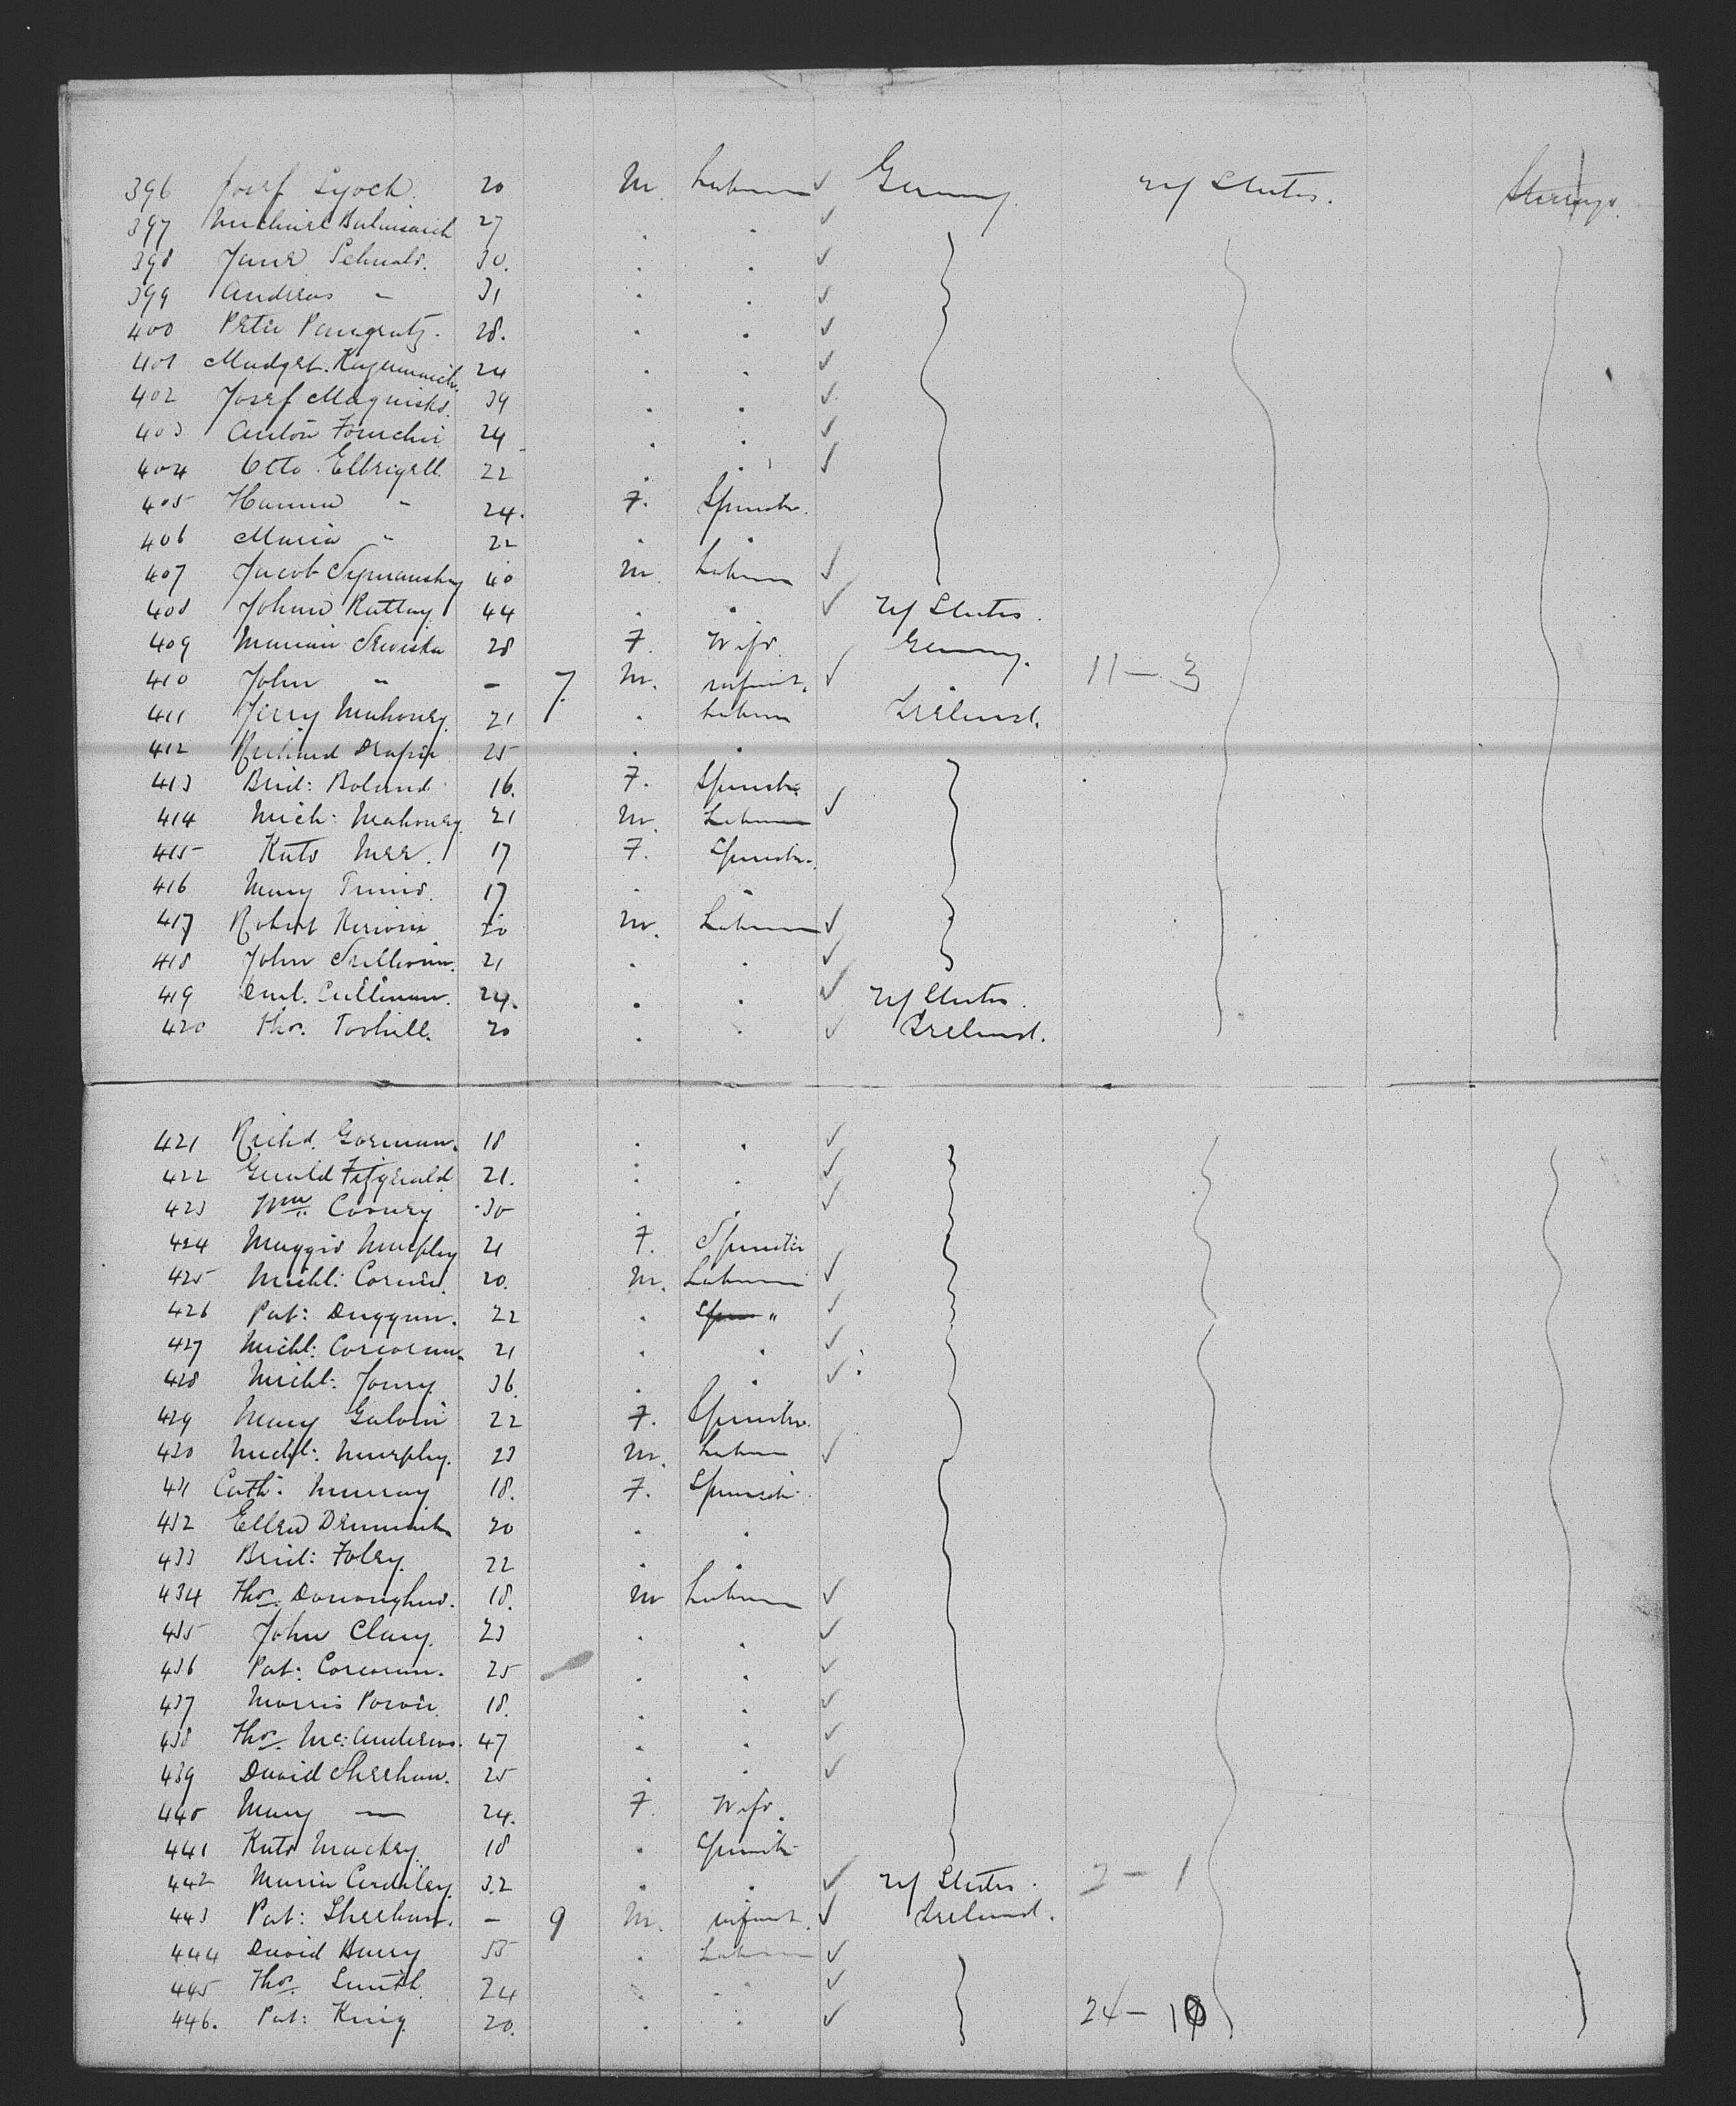 396 Josef Syoch. 20 M. Labourer ✓ Germany. U/ States. Steerage.
397 27 . . ✓
398 Jane Schuals. 30. . . ✓
399 Andreas " 31 . . ✓
400 Peter Pangratz. 28. . . ✓
401 24 . . ✓
402 Josef 39 . . ✓
403 Anton 24 . . ✓
404 Otto Elbrigell. 22 . . ✓
405 Hanna " 24. F. Spinster.
406 Maria " 22 . .
407 Jacob Sypmansky 40 M. Labourer ✓
408 Johann Rattay 44 . . ✓ U/ States.
409 28 F. Wife. Germany.
410 John " - 7. M. infant. ✓ . 11 - 3
411 Jerry Mahoney. 21 . Labourer Ireland.
412 Richard Draper 25 . .
413 Brid: Boland 16. F. Spinster.
414 Mich: Mahoney. 21 M. Labourer ✓
415 Kate Mee. 17 F. Spinster.
416 Mary 17 . .
417 Robert 20 M. Labourer ✓
418 John Sullivan. 21 . . ✓
419 Cullinan. 24. . . ✓ U/ States.
420 Thos. Toohill. 20 . . ✓ Ireland.
421 Richd. Gorman. 18 . . ✓
422 Gerald Fitzgerald 21. . . ✓
423 Wm. Cooney 30 . . ✓
424 Maggie Murphy 21 F. Spinster
425 Michl: 20. M. Labourer ✓
426 Pat: Duggan. 22 . " ✓
427 Michl: Corcoran. 21 . . ✓
428 Michl: 36. . . ✓
429 Mary Galvin 22 F. Spinster.
430 Michl: Murphy. 23 M. Labourer ✓
431 Cath: Murray 18. F. Spinster
432 Ellen 20 . .
433 Brid: Foley. 22 . .
434 Thos. Donoughue. 18. M Labourer ✓
435 John Clary. 23 . . ✓
436 Pat: Corcoran. 25 . . ✓
437 Morris Power. 18. . . ✓
438 Thos. Mc:Andrews. 47 . . ✓
439 David Sheehan. 25 . . ✓
440 Mary — 24. F. Wife.
441 Kate Mackey. 18 . Spinster
442 Maria 32 . . ✓ U/ States. 2 - 1
443 Pat: Sheehan. - 9 M. infant. ✓ Ireland.
444 David Barry 55 . Labourer ✓
445 Thos. Smith. 24 . . ✓
446. Pat: King. 20. . . ✓ 24 - 10